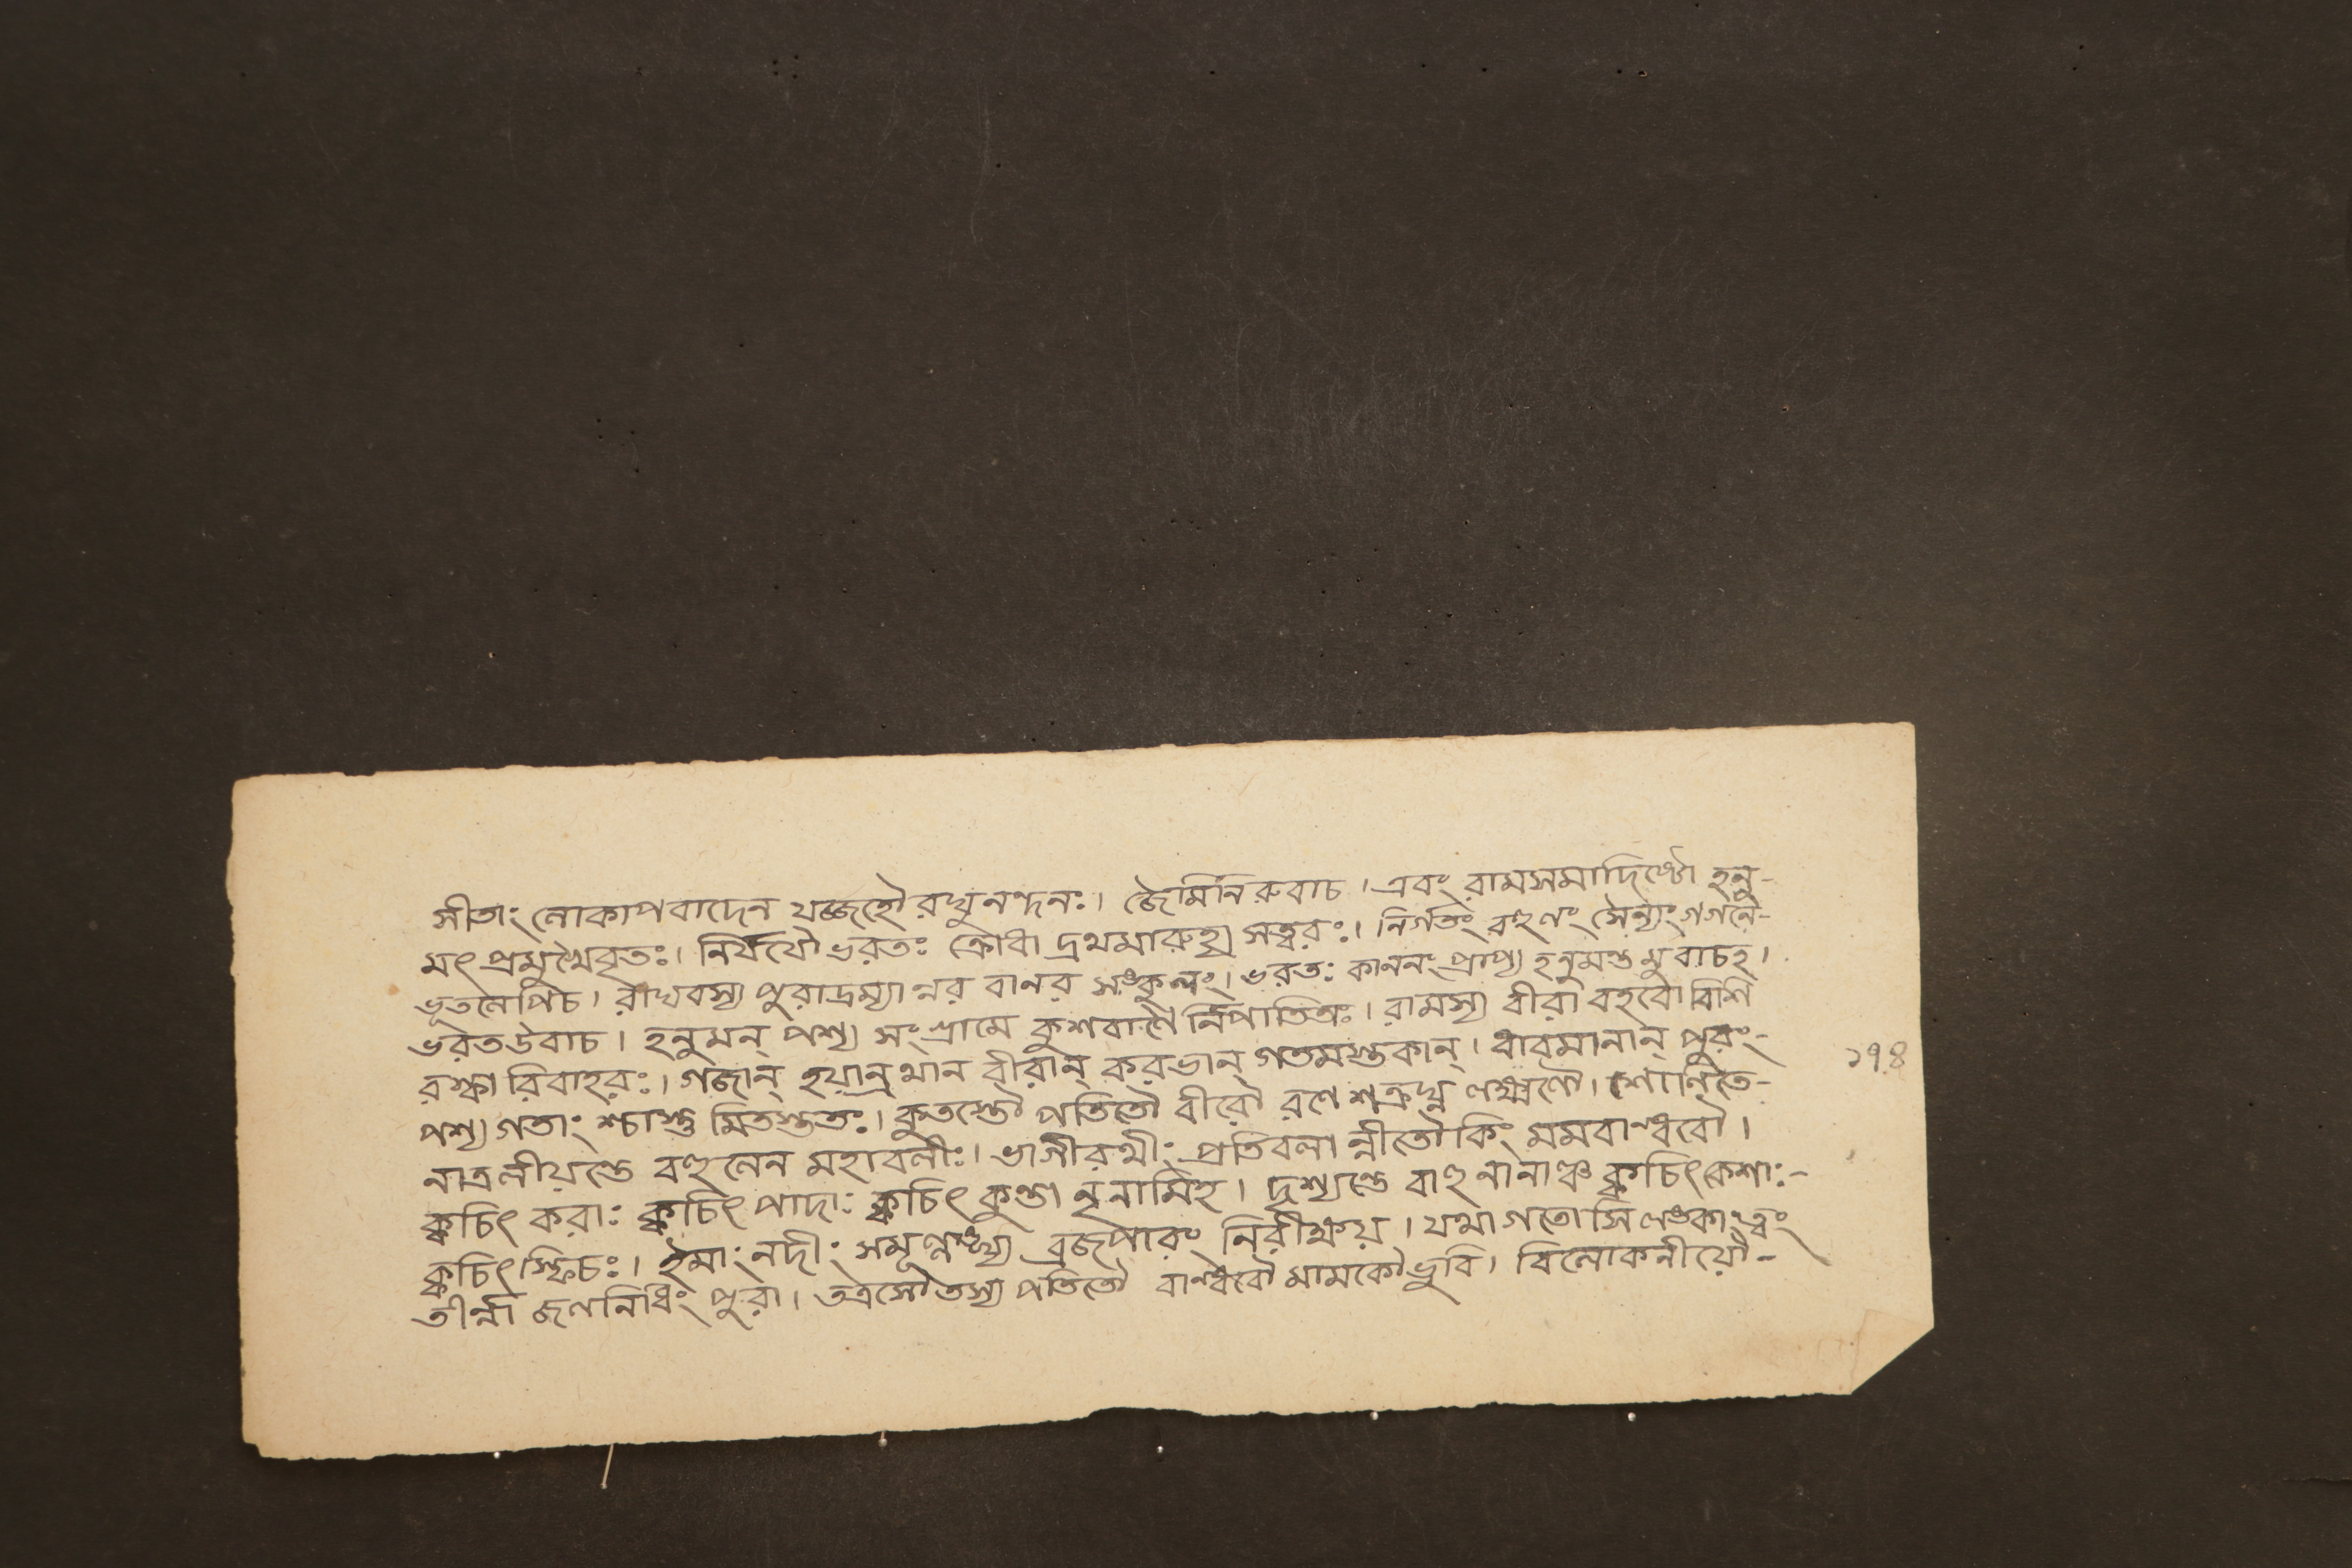 সীতাং লোকাপবাদেন যজ্জহৌ রঘুনন্দনঃ। জৈমিনিরুবাচ। এবং রামসমাদিষ্টো হনু-
মৎ প্রমুখৈবৃতঃ। নির্যযৌ ভরতঃ ক্রোধা দ্রথমারুহ্য সত্বরঃ। নির্গতং সৈন্যং গগনে-
ভূতলেপিচ। রাঘবস্য পুরাদ্রম্যা ন্নর বানর সঙ্কুলং। ভরতঃ কাননং প্রাপ্য হনুমন্ত মুবাচহ।
ভরতউবাচ। হনুমন্ পশ্য সংগ্রামে কুশবাণৈ র্নিপাতিতাঃ। রামস্য বীরা বহবো বিশি
রস্কা রিবাহরঃ। গজান্ হয়ান্রথান বীরান্ করভান্ গতমস্তকান্। ধাবমানান্ পুরং-
পশ্য গতাং শ্চাস্তু মিতস্ততঃ। কুতস্তৌ পতিতৌ বীরৌ রণে শত্রুঘ্ন লক্ষ্মণৌ। শোনিতে-
নাত্রনীয়ন্তে বহুলেন মহাবলীঃ। ভাগীরথীং প্রতিবলা ন্নীতৌ কিং মমবান্ধবৌ।
ক্কচিৎ করাঃ ক্কচিৎ পাদাঃ ক্কচিৎ কুণ্ডা নৃনামিহ। দৃশ্যন্তে বাহু নানাঞ্চ ক্কচিৎকেশাঃ-
ক্কচিৎস্ফিচঃ। ইমাং নদীং সমূল্লঙ্ঘ্য ব্রজপারং নিরীক্ষয়। যথা গতোসি লঙ্কাংত্বং
তীর্ত্বা জলনিধিং পুরা। তত্রসৌতস্য পতিতৌ বান্ধবৌ মামকৌ ভুবি। বিলোকনীয়ৌ-
১৭৪